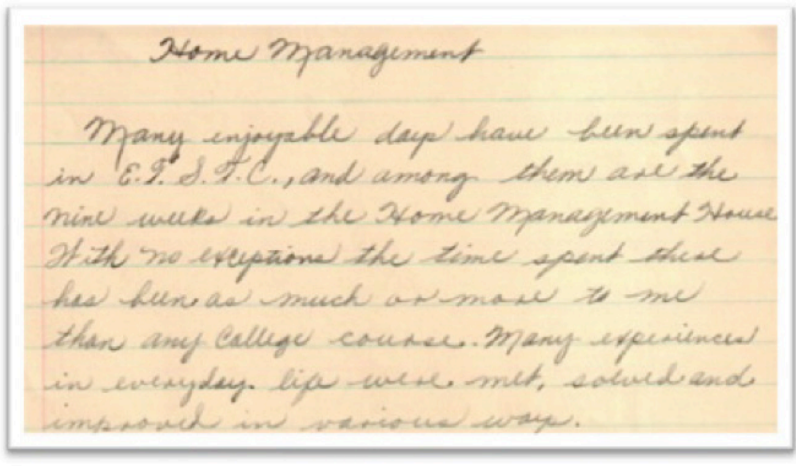 Home Management
Many enjoyable days have been spent
in E.T.S.T.C., and among them are the
nine weeks in the Home Management House
With no exceptions the time spent there
has been as much or more to me
than any College course. Many experiences
in everyday life were met, solved and
improved in various ways.